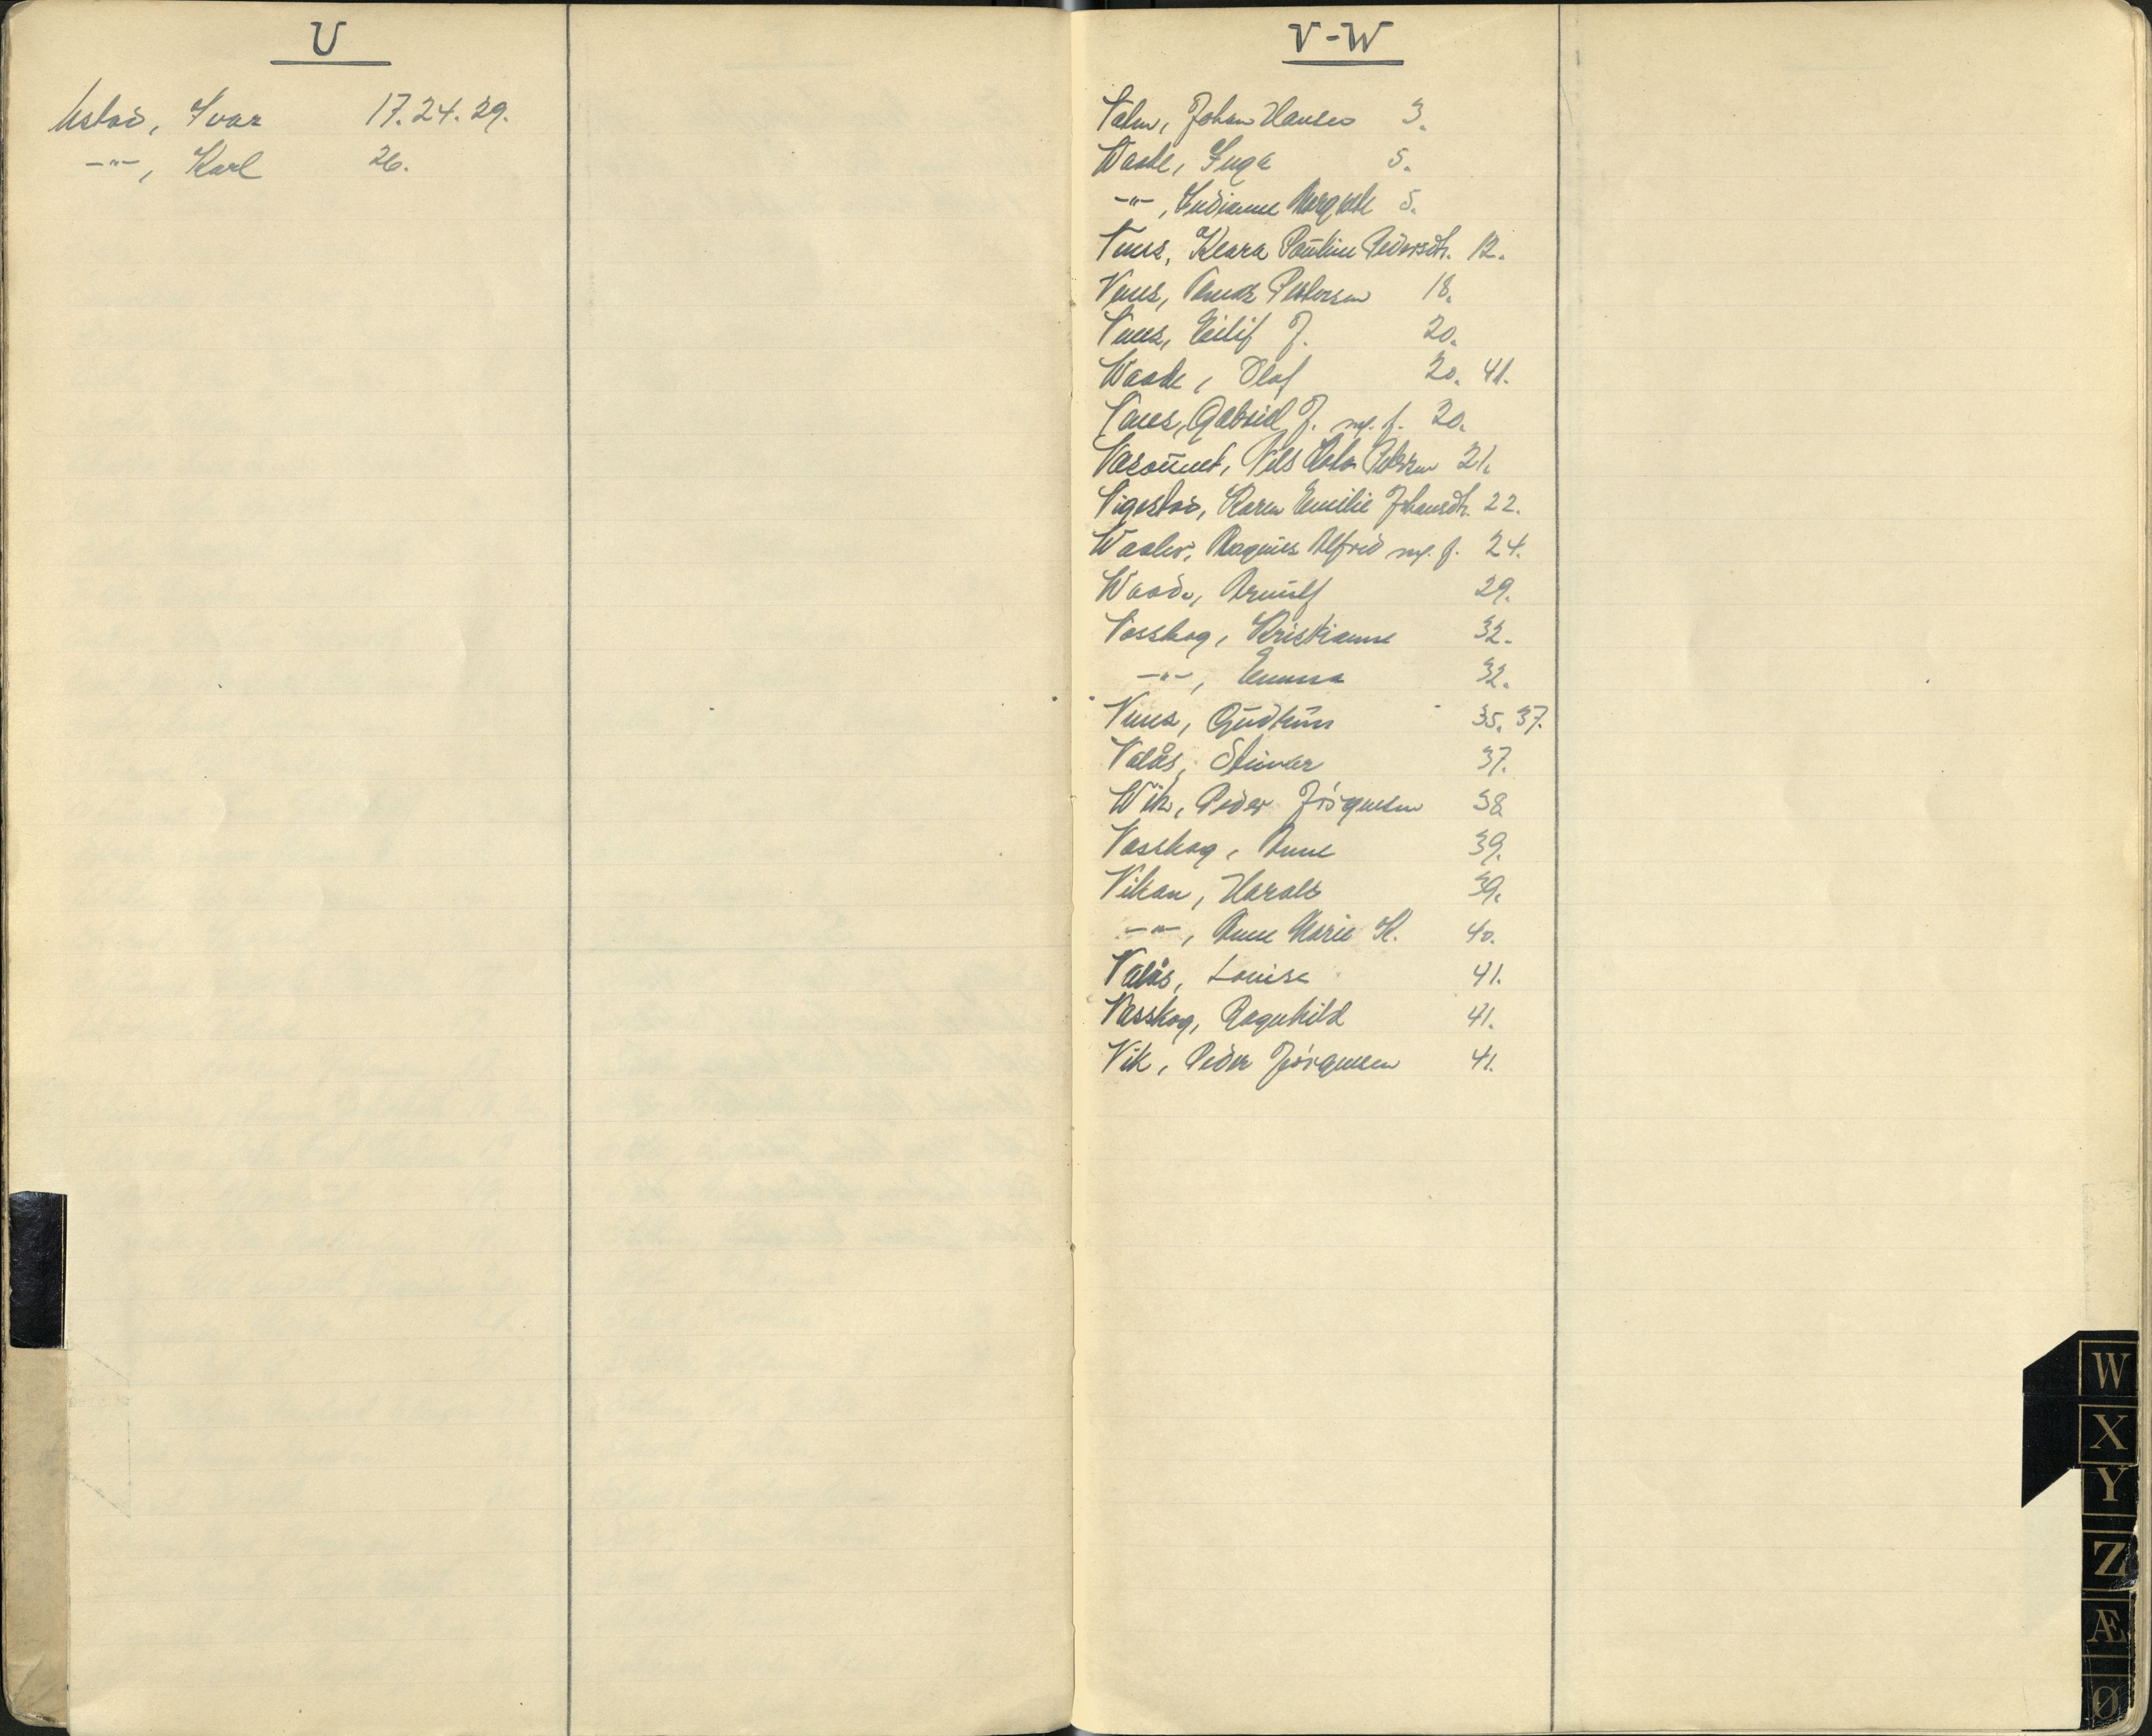 U
Ustad, Ivar 17. 24. 29.
-"-, Karl 26.
V-W
Valen, Johan Hansen 3.
Waade, Inga 5.
-"-, Indianne Margrete 5.
Venes, Klara Pauline Pedersdtr. 12.
Venes, Peder Pedersen 18.
Venes, Eilif J. 20.
Waade, Olaf 20. 41.
Venes, Gabriel J. 20.
Nils Pedersen 21.
Vigestad, Karen Emilie Johansdtr. 22.
Magnus Alfred 24.
Waade, Arnulf 29.
Vasskog, Kristianne 32.
-"-, Emma 32.
Venes, Gudrun 35. 37.
Valås, Steinar 37.
Wik, Peder Jørgensen 38
Vasskog, Anne 39.
Vikan, Harald 39.
-"-, Anne Marie K. 40.
Valås, Louise 41.
Vasskog, Ragnhild 41.
Vik, Peder Jørgensen 41.
W
X
Y
Z
Æ
Ø